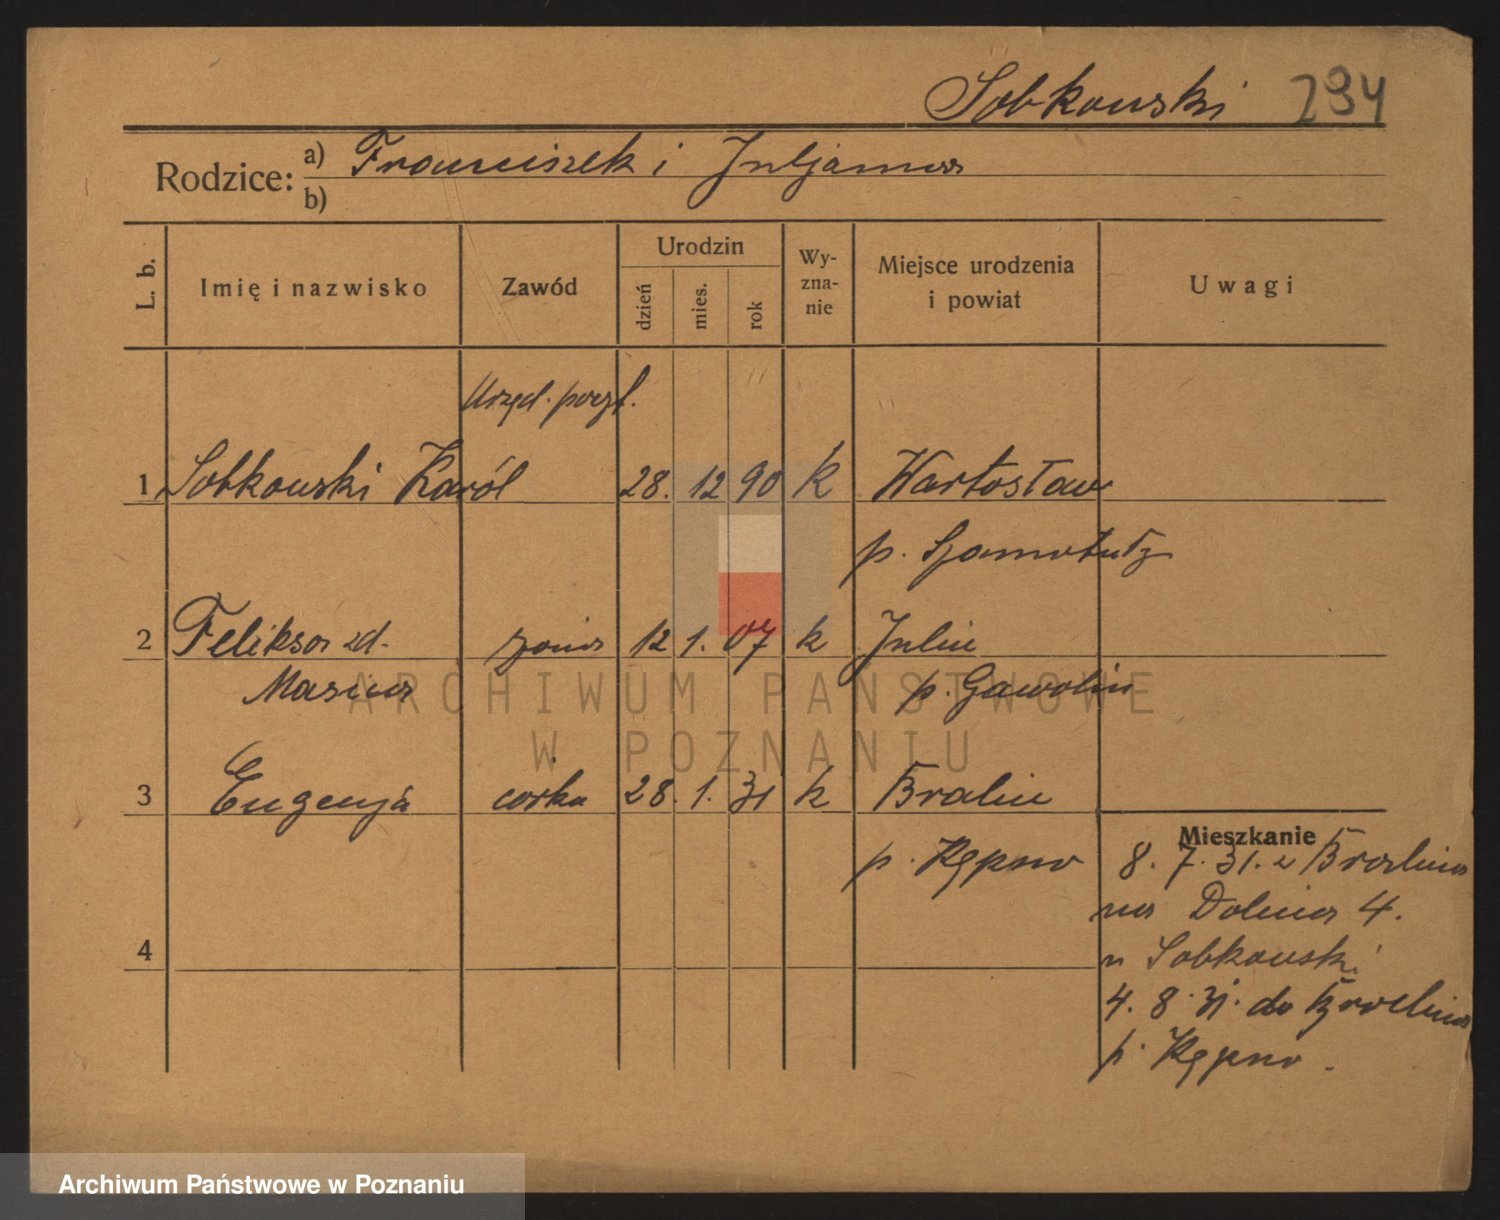 Sobkowski 294
Rodzice: a) Franciszek i Juljanna
b)
L. b. Imię i nazwisko Zawód Urodzin dzień mies. rok Wy-zna-nie Miejsce urodzenia i powiat Uwagi
Urzęd. poczt.
1 Sobkowski Karól 28. 12 90 k Wartosław
p. Szamotuły
2 Feliksa zd. żona 12 1. 07 k Julin
p. Gawolin
3 Eugenja córka 28. 1. 31 k Bralin
Mieszkanie
p. Kępno 8. 7. 31. z Bralina
na Dolina 4.
4 u Sobkowski
4. 8. 31. do Bralina
p. Kępno.
ARCHIWUM PAŃSTWOWE
W POZNANIU
Archiwum Państwowe w Poznaniu